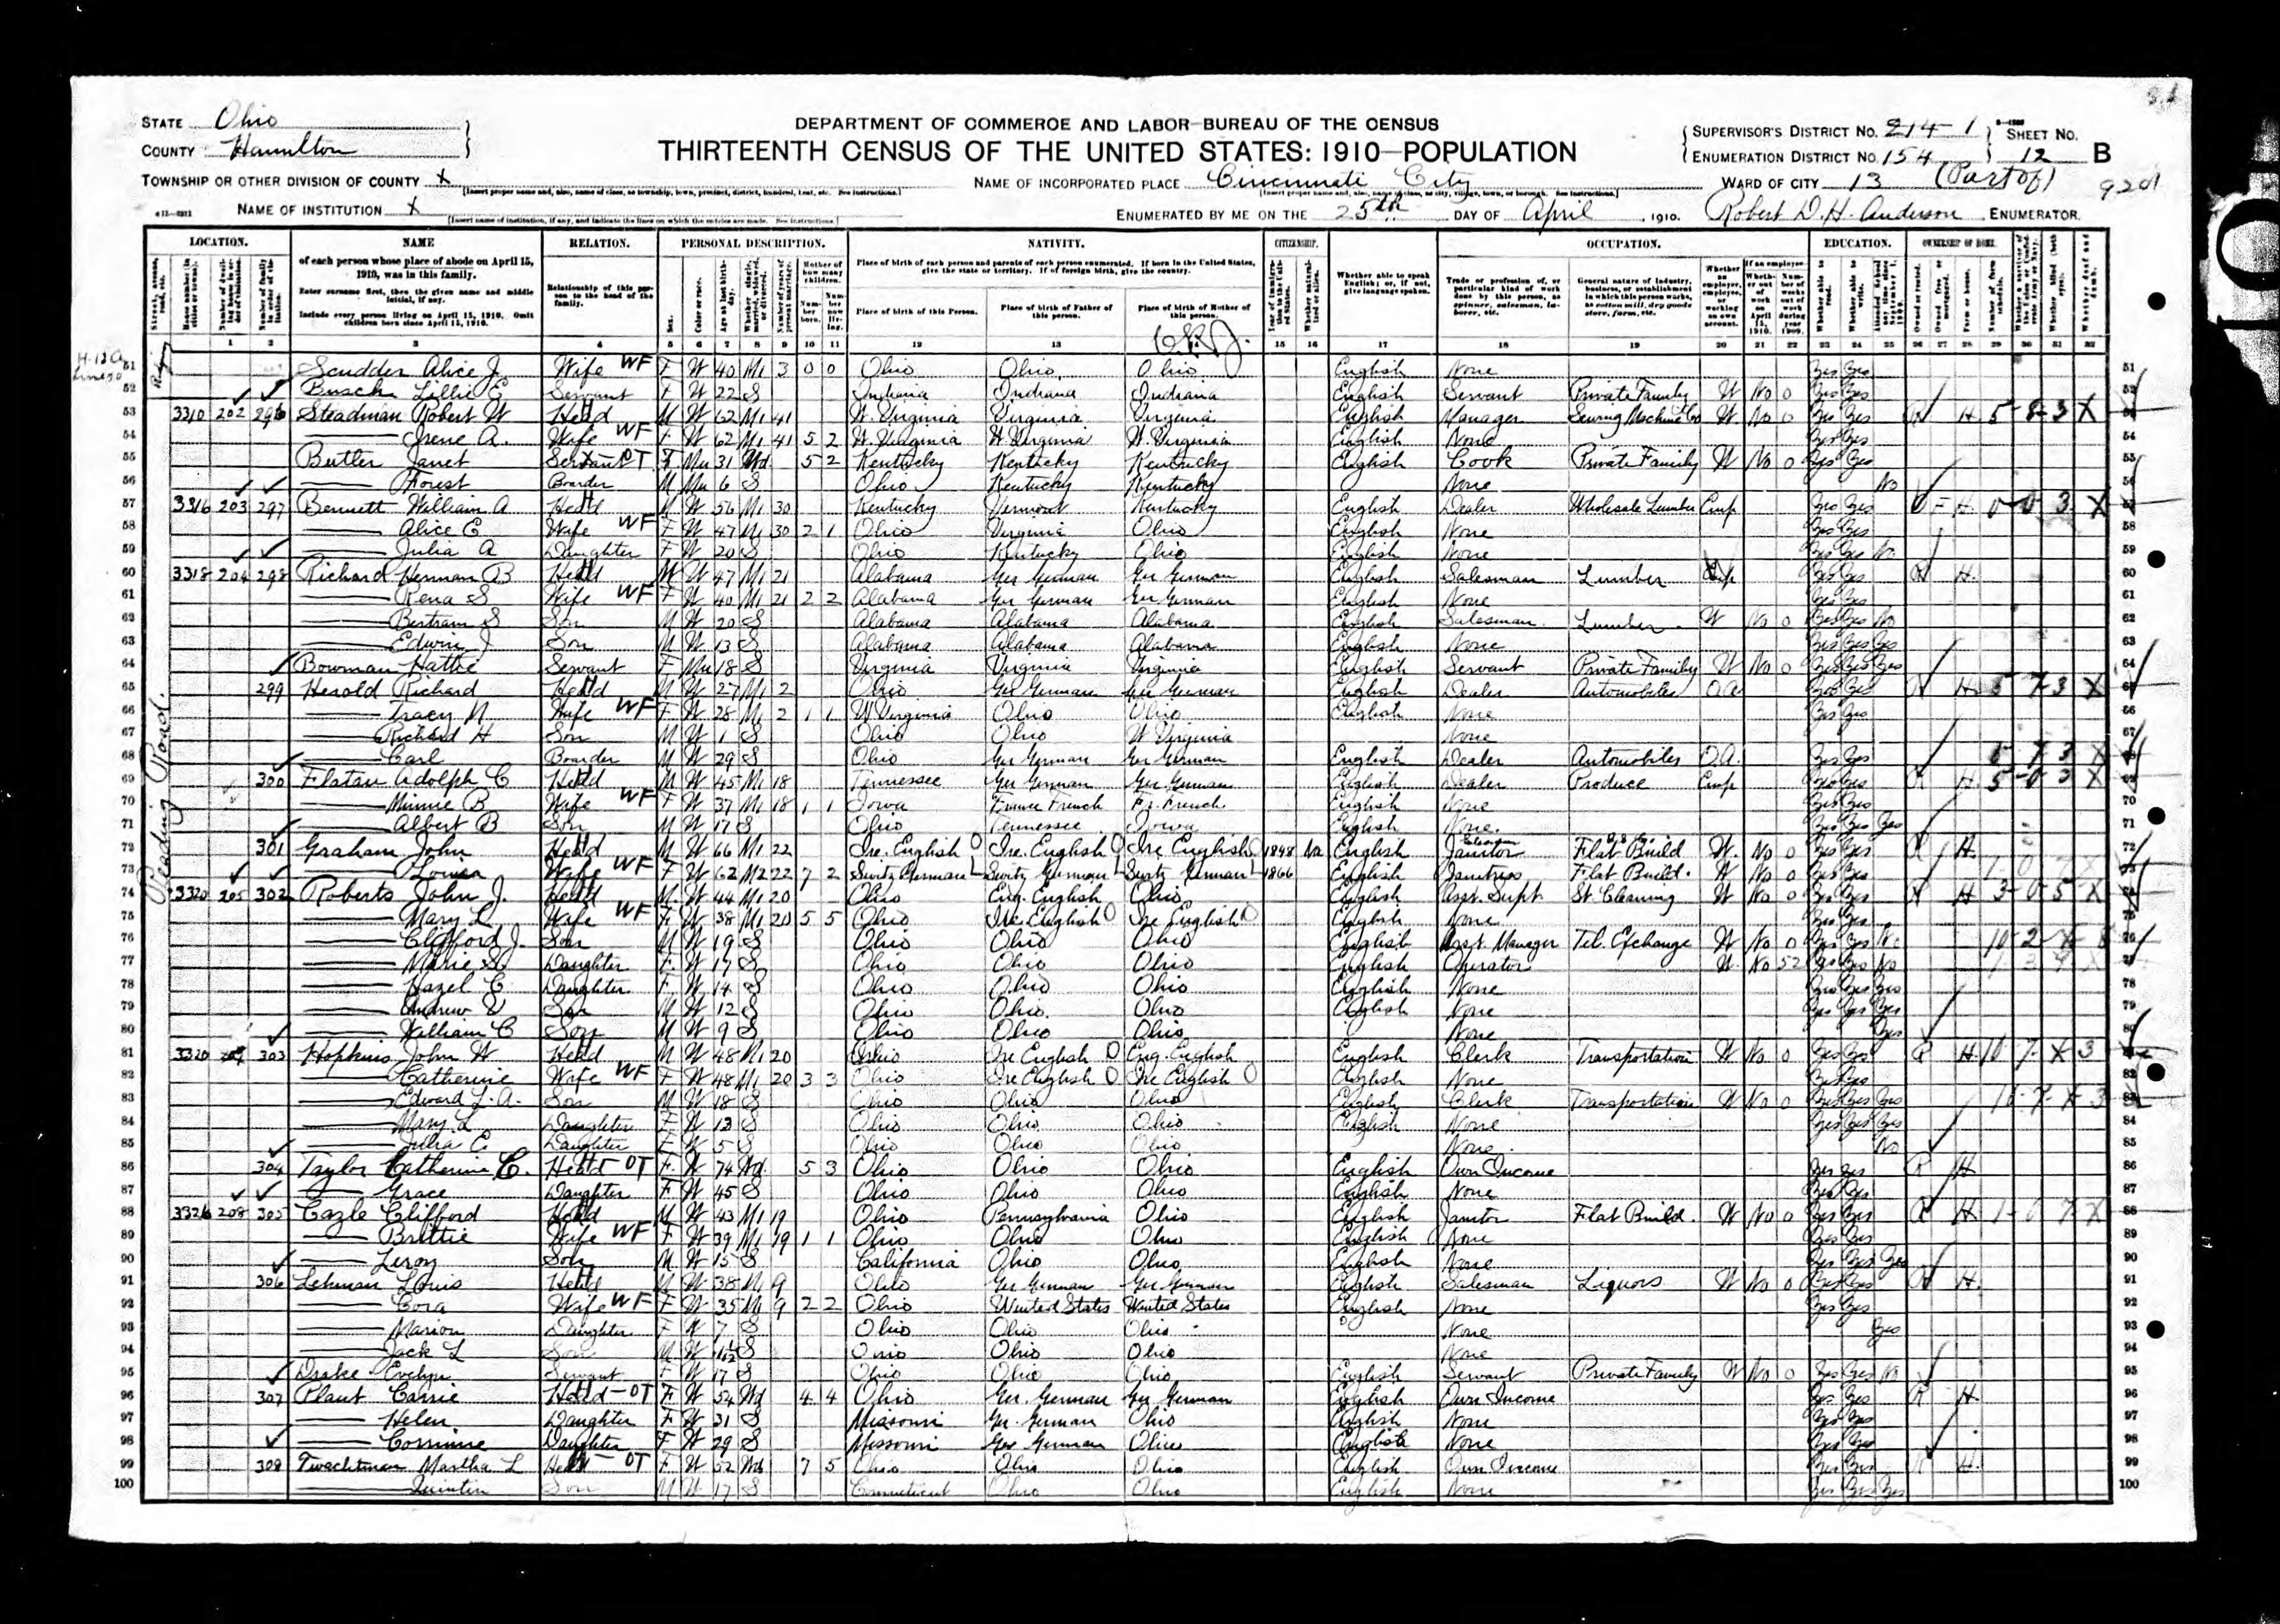 STATE Ohio
COUNTY Hamilton
TOWNSHIP OR OTHER DIVISION OF COUNTY X
NAME OF INSTITUTION X
DEPARTMENT OF COMMERCE AND LABOR—BUREAU OF THE CENSUS
THIRTEENTH CENSUS OF THE UNITED STATES: 1910—POPULATION
NAME OF INCORPORATED PLACE Cincinnati City
ENUMERATED BY ME ON THE 25th DAY OF April, 1910. Robert D. H. Anderson ENUMERATOR.
SUPERVISOR'S DISTRICT NO. 214-1 SHEET NO.
ENUMERATION DISTRICT NO. 154 12 B
WARD OF CITY 13 (Part of) 9201
LOCATION. NAME RELATION. PERSONAL DESCRIPTION. NATIVITY. CITIZENSHIP. OCCUPATION. EDUCATION. OWNERSHIP OF HOME.
of each person whose place of abode on April 15, 1910, was in this family.
Enter surname first, then the given name and middle initial, if any.
Include every person living on April 15, 1910. Omit children born since April 15, 1910.
Relationship of this person to the head of the family.
Place of birth of each person and parents of each person enumerated. If born in the United States, give the state or territory. If of foreign birth, give the country.
Place of birth of this Person. Place of birth of Father of this person. Place of birth of Mother of this person.
Whether able to speak English; or, if not, give language spoken.
Reading Road.
51 Scudder Alice J Wife WF F W 40 M1 3 0 0 Ohio Ohio Ohio English None Yes Yes
52 Busch Lillie E Servant F W 22 S Indiana Indiana Indiana English Servant Private Family W No 0 Yes Yes
53 3310 202 296 Steadman Robert W Head M W 62 M1 41 W. Virginia Virginia Virginia English Manager Sewing Machine Co W No 0 Yes Yes R H 5-8-3 X
54 Irene A. Wife WF F W 62 M1 41 5 2 W. Virginia W Virginia W. Virginia English None Yes Yes
55 Butler Janet Servant OT F Mu 31 Wd 5 2 Kentucky Kentucky Kentucky English Cook Private Family W No 0 Yes Yes
56 Forest Boarder M Mu 6 S Ohio Kentucky Kentucky None No
57 3316 203 297 Bennett William A Head M W 56 M1 30 Kentucky Vermont Kentucky English Dealer Wholesale Lumber Emp Yes Yes O F H 0-0 3 X
58 Alice E Wife WF F W 47 M1 30 2 1 Ohio Virginia Ohio English None Yes Yes
59 Julia A Daughter F W 20 S Ohio Kentucky Ohio English None Yes Yes No
60 3318 204 298 Richard Herman B Head M W 47 M1 21 Alabama Ger German Ger German English Salesman Lumber Yes Yes R H
61 Rena S Wife WF F W 40 M1 21 2 2 Alabama Ger German Ger German English None Yes Yes
62 Bertram S Son M W 20 S Alabama Alabama Alabama English Salesman Lumber W No 0 Yes Yes No
63 Edwin J Son M W 13 S Alabama Alabama Alabama English None Yes Yes Yes
64 Bowman Hattie Servant F Mu 18 S Virginia Virginia Virginia English Servant Private Family W No 0 Yes Yes Yes
65 299 Herold Richard Head M W 27 M1 2 Ohio Ger German Ger German English Dealer Automobiles O.A. Yes Yes R H 5-7-3 X
66 Tracy N Wife WF F W 28 M1 2 1 1 W Virginia Ohio Ohio English None Yes Yes
67 Richard H Son M W 1 S Ohio Ohio W Virginia None
68 Carl Boarder M W 29 S Ohio Ger German Ger German English Dealer Automobiles O.A. Yes Yes 5 7 3 X
69 300 Flatau Adolph C Head M W 45 M1 18 Tennessee Ger German Ger German English Dealer Produce Emp Yes Yes R H 5-0 3 X
70 Minnie B Wife WF F W 37 M1 18 1 1 Iowa France French Fr. French English None Yes Yes
71 Albert B Son M W 17 S Ohio Tennessee Iowa English None Yes Yes Yes
72 301 Graham John Head M W 66 M1 22 Ire. English Ire. English Ire English 1848 Na English Janitor Flat Build W. No 0 Yes Yes R H
73 Louisa Wife WF F W 62 M2 22 7 2 Switz German Switz German Switz German 1866 English Janitress Flat Build. W No 0 Yes Yes
74 3320 205 302 Roberts John J. Head M W 44 M1 20 Ohio Eng. English Ohio English Asst. Supt St Cleaning W No 0 Yes Yes R H 3-0 5 X
75 Mary L Wife WF F W 38 M1 20 5 5 Ohio Ire English Ire English English None Yes Yes
76 Clifford J. Son M W 19 S Ohio Ohio Ohio English Asst. Manager Tel. Exchange W No 0 Yes Yes No
77 Marie Daughter F W 17 S Ohio Ohio Ohio English Operator W No 52 Yes Yes No
78 Hazel C Daughter F W 14 S Ohio Ohio Ohio English None Yes Yes Yes
79 Andrew Son M W 12 S Ohio Ohio Ohio English None Yes Yes Yes
80 William C Son M W 9 S Ohio Ohio Ohio None Yes
81 3320 303 Hopkins John W Head M W 48 M1 20 Ohio Ire English Eng. English English Clerk Transportation W No 0 Yes Yes R H 10 7-X 3
82 Catherine Wife WF F W 48 M1 20 3 3 Ohio Ire English Ire English English None Yes Yes
83 Edward L. A. Son M W 18 S Ohio Ohio Ohio English Clerk Transportation W No 0 Yes Yes Yes 10-7-X-3
84 Mary L Daughter F W 13 S Ohio Ohio Ohio English None Yes Yes Yes
85 Julia E Daughter F W 5 S Ohio Ohio Ohio None No
86 304 Taylor Catherine C. Head-OT F W 74 Wd 5 3 Ohio Ohio Ohio English Own Income Yes Yes R H
87 Grace Daughter F W 45 S Ohio Ohio Ohio English None Yes Yes
88 3326 208 305 Cazle Clifford Head M W 43 M1 19 Ohio Pennsylvania Ohio English Janitor Flat Build. W No 0 Yes Yes R H 1-0 7 X
89 Brittie Wife WF F W 39 M1 19 1 1 Ohio Ohio Ohio English None Yes Yes
90 Leroy Son M W 15 S California Ohio Ohio English None Yes Yes Yes
91 306 Lehman Louis Head M W 38 M1 9 Ohio Ger German Ger German English Salesman Liquors W No 0 Yes Yes R H
92 Cora Wife WF F W 35 M1 9 2 2 Ohio United States United States English None Yes Yes
93 Marion Daughter F W 7 S Ohio Ohio Ohio None Yes
94 Jack L Son M W S Ohio Ohio Ohio None
95 Drake Evelyn Servant F W 17 S Ohio Ohio Ohio English Servant Private Family W No 0 Yes Yes No
96 307 Plaut Carrie Head-OT F W 54 Wd 4 4 Ohio Ger. German Ger German English Own Income Yes Yes R H
97 Helen Daughter F W 31 S Missouri Ger. German Ohio English None Yes Yes
98 Corinne Daughter F W 29 S Missouri Ger German Ohio English None Yes Yes
99 308 Twachtman Martha L Head-OT F W 52 Wd 7 5 Ohio Ohio Ohio English Own Income Yes Yes R H
100 Quintin Son M W 17 S Connecticut Ohio Ohio English None Yes Yes Yes